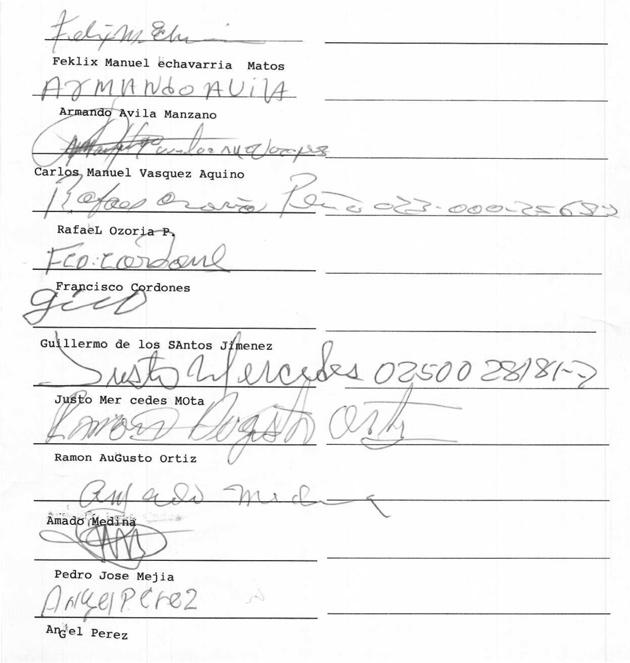 Felix M. Ech
Feklix Manuel echavarria Matos
ArMANdO AVILA
Armando Avila Manzano
Carlos Manuel Vasquez Aquino
Rafael Ozoria Peña 023-000
RafaeL Ozoria P.
Fco. Cordone
Francisco Cordones
Guillermo de los SAntos Jimenez
Justo Mercedes 02500 28181-7
Justo Mer cedes MOta
Ramon Augusto Orti
Ramon AuGusto Ortiz
Amado Medina
Amado Medina
Pedro Jose Mejia
Angel Perez
AnGel Perez